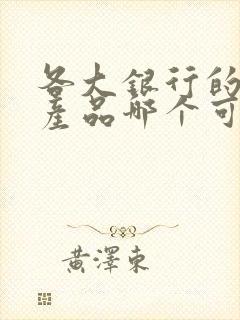 各大銀行的
產品哪个可
黃澤東